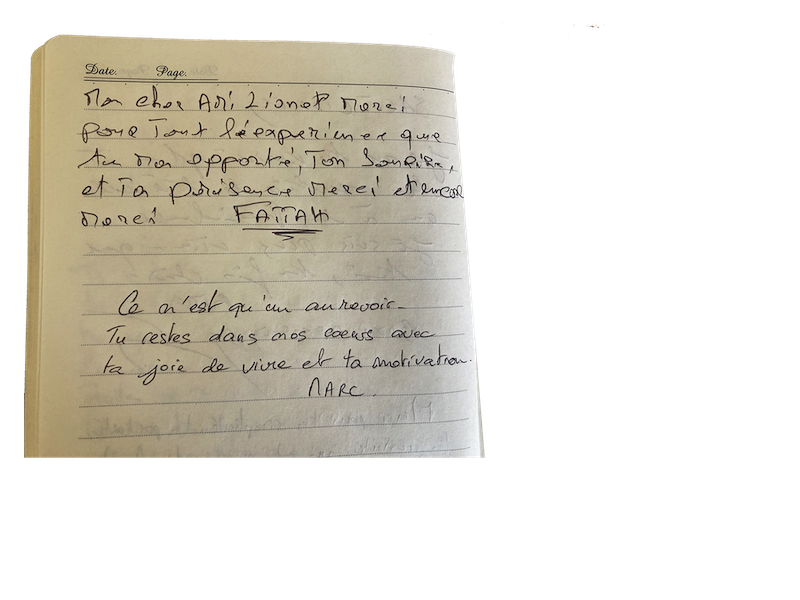 Date. Page.
Mon cher AMi Lionel Merci
pour Tout l'éexperiences que
tu Ma apporté, Ton Sourire,
et Ta présence Merci et encore
Merci FATTAH
Ce n'est qu'un aurevoir.
Tu restes dans nos coeurs avec
ta joie de vivre et ta motivation.
MARC.